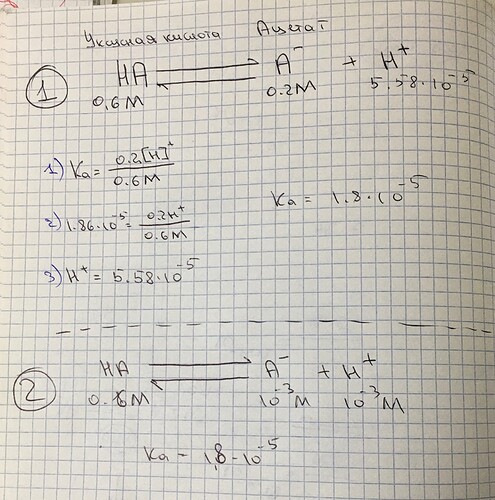 Уксусная кислота Ацетат
① HA ⇌ A⁻ + H⁺
0,6M 0.2M 5,58·10⁻⁵
1) Ka = 0.2[H]⁺ / 0.6M
Ka = 1.8·10⁻⁵
2) 1.86·10⁻⁵ = 0.2H⁺ / 0.6M
3) H⁺ = 5.58·10⁻⁵
② HA ⇌ A⁻ + H⁺
M 10⁻³M 10⁻³M
Ka = 1,8·10⁻⁵